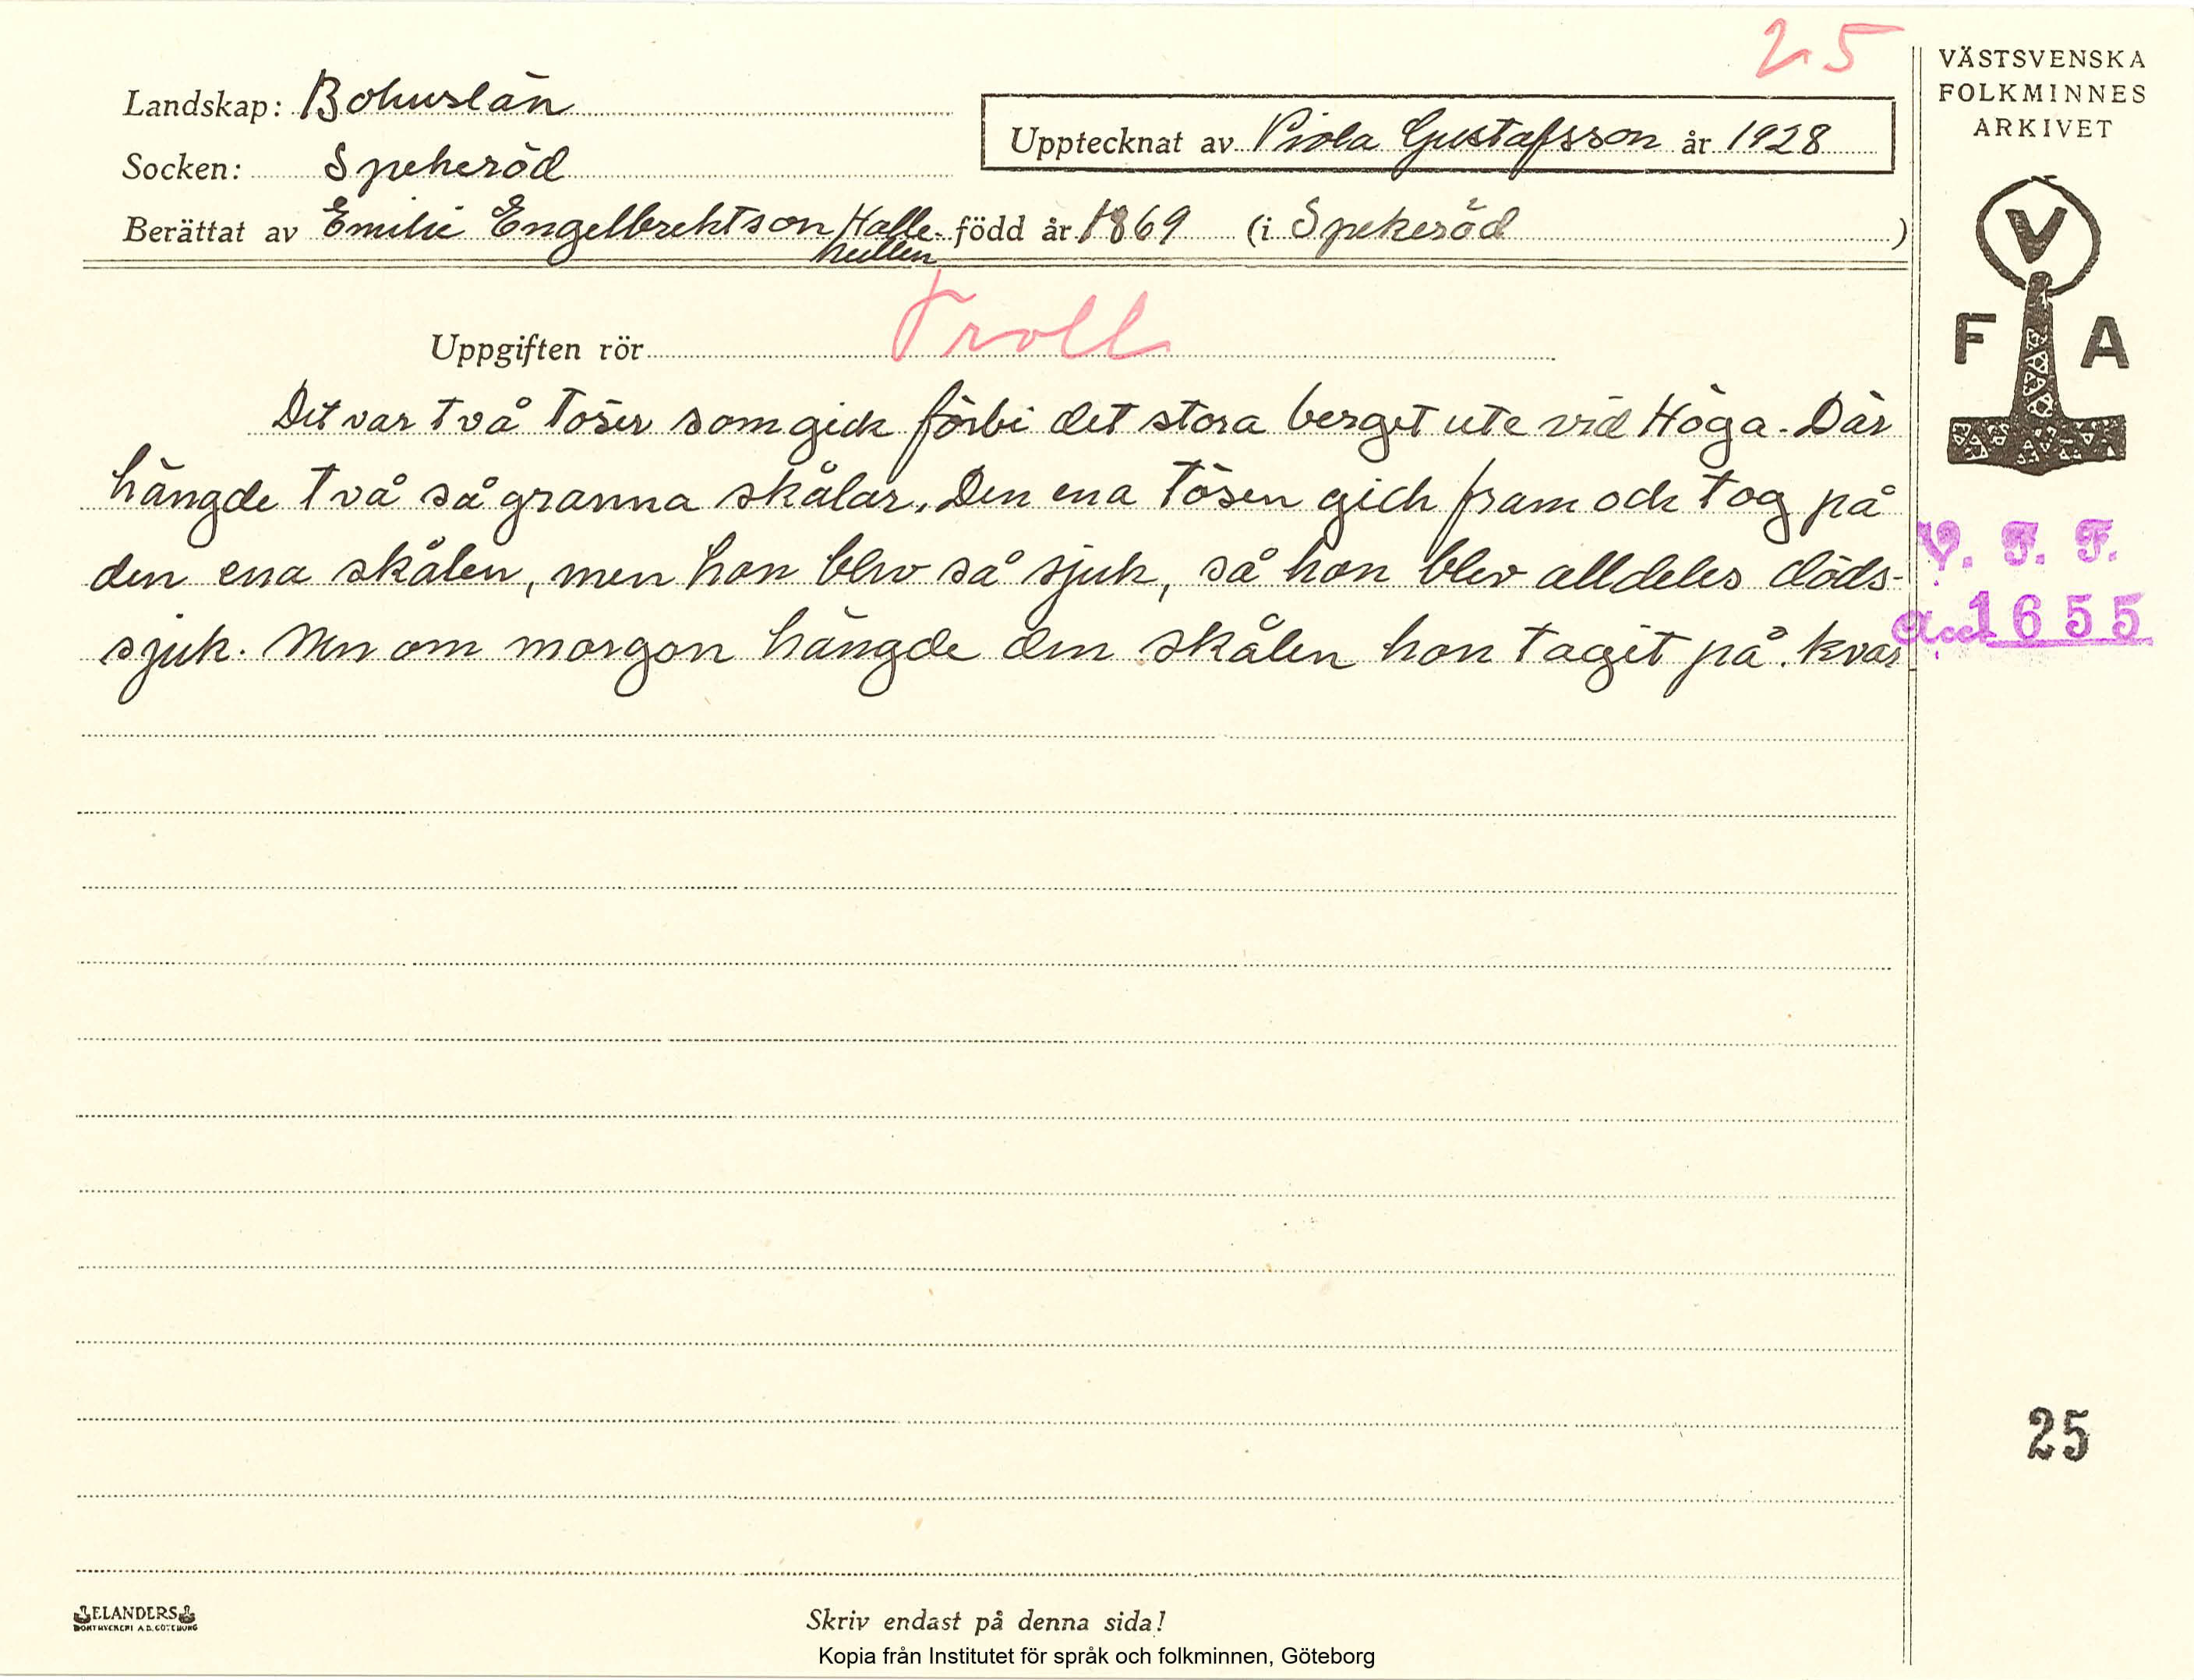 25
VÄSTSVENSKA
FOLKMINNES
ARKIVET
Landskap: Bohuslän
Upptecknat av Viola Gustafsson år 1928
Socken: Spekeröd
Berättat av Emilie Engelbrektson Halle- född år 1869 (i Spekeröd)
hellen
V
F A
Uppgiften rör Troll
Det var två töser som gick förbi det stora berget ute vid Höga. Där
hängde två så granna skålar. Den ena tösen gick fram och tog på
den ena skålen, men hon blev så sjuk, så hon blev alldeles döds-
sjuk. Men om morgon hängde den skålen hon tagit på. kvar
V. F. F.
Acc. 1655
25
ELANDERS
BOKTRYCKERI A.B. GÖTEBORG
Skriv endast på denna sida!
Kopia från Institutet för språk och folkminnen, Göteborg